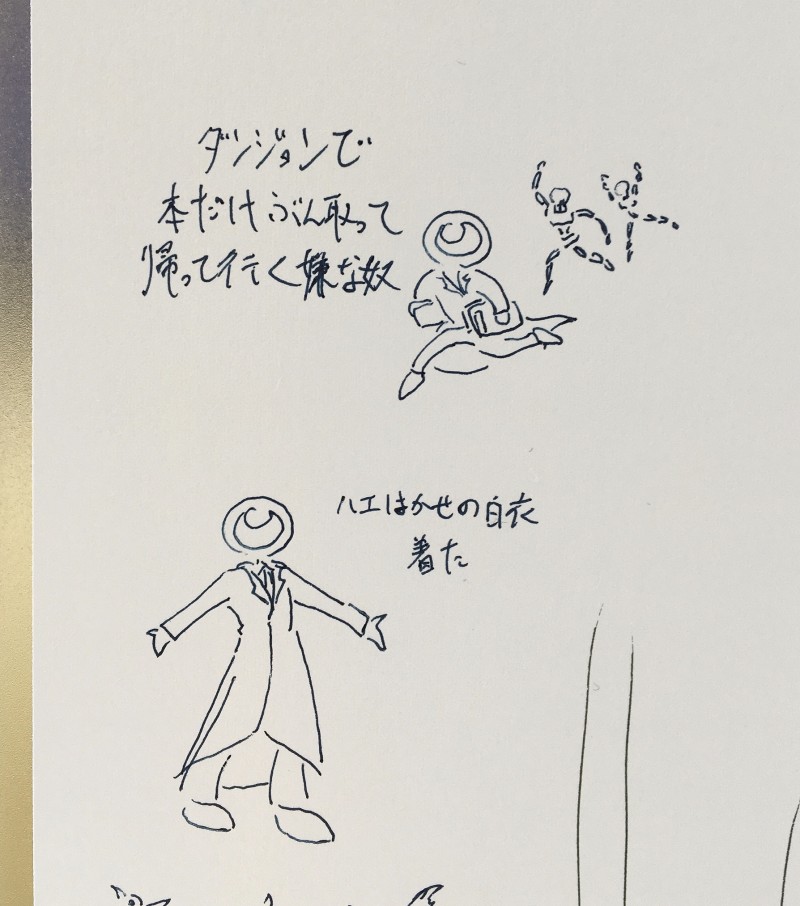 ダンジョンで
本だけぶん取って
帰って行く嫌な奴
ハエはかせの白衣
着た